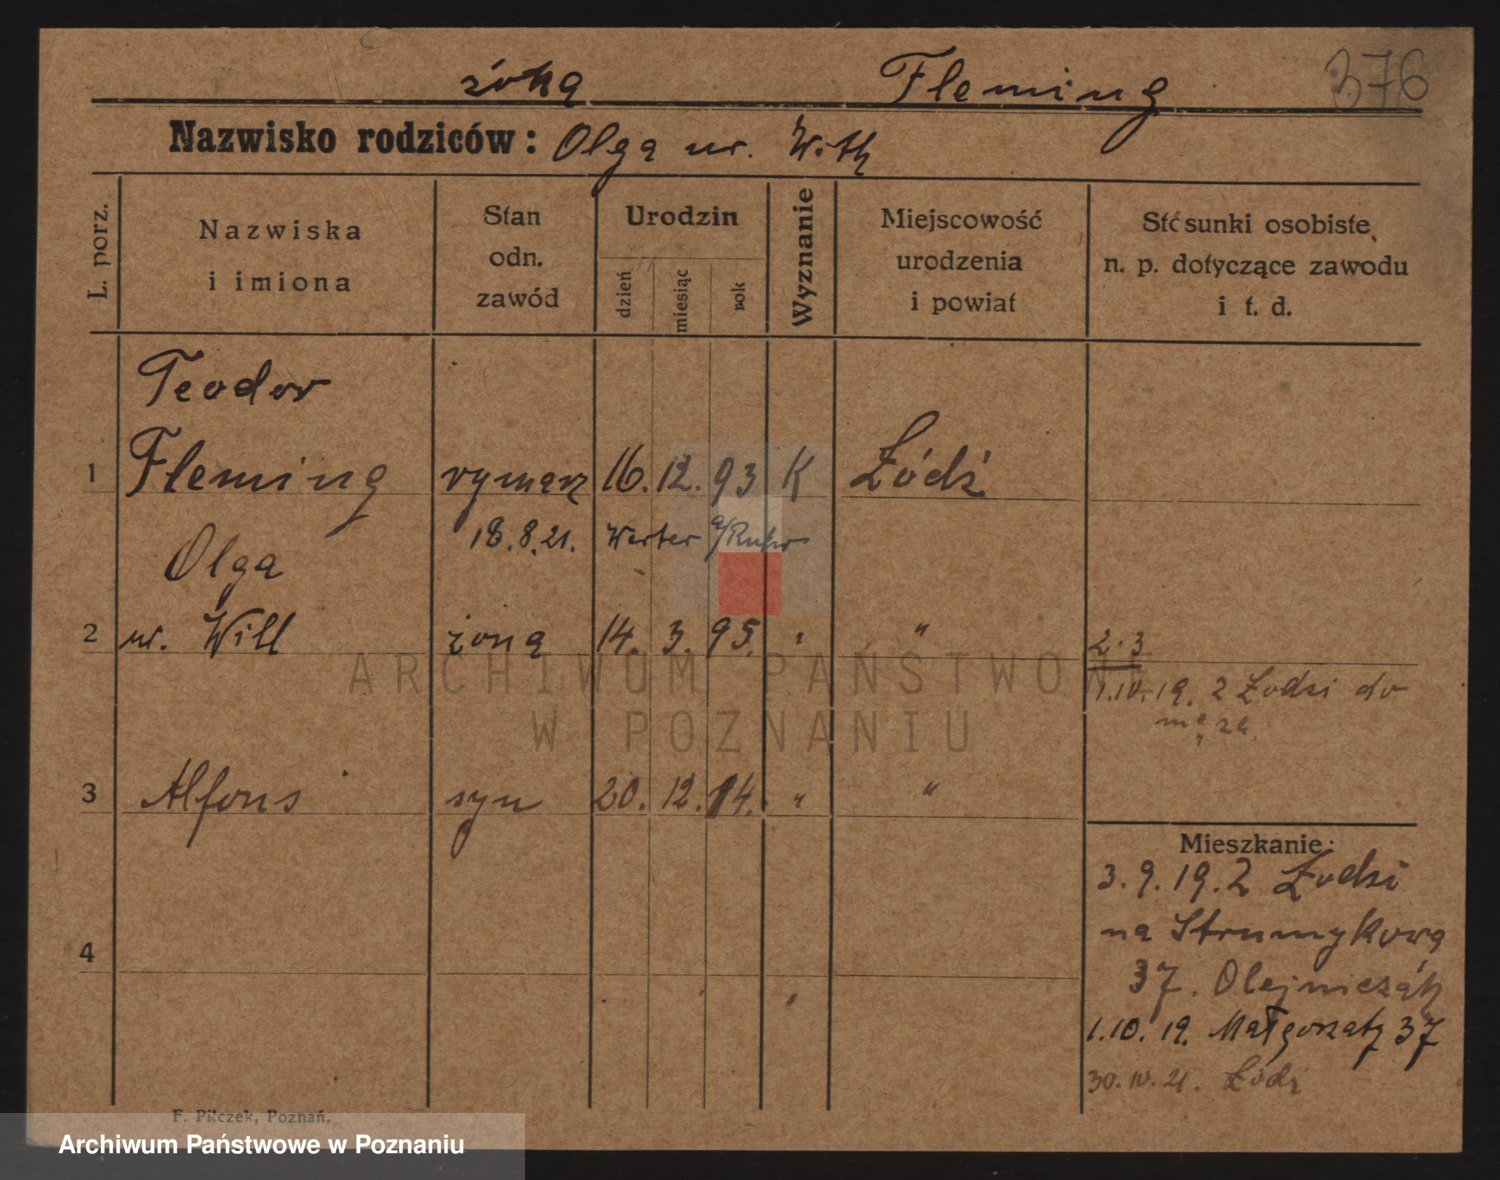 żona Fleming 376
Nazwisko rodziców: Olga ur. With
L. porz.
Nazwiska
i imiona
Stan
odn.
zawód
Urodzin
dzień
miesiąc
rok
Wyznanie
Miejscowość
urodzenia
i powiat
Stosunki osobiste
n. p. dotyczące zawodu
i t. d.
Teodor
1 Fleming rymarz 16. 12. 93 K Łódź
18.8.21. Werter a/Ruhr
Olga
2 ur. Will żona 14. 3. 95. " "
2.3
1.10.19. z Łodzi do
męża
3 Alfons syn 20. 12. 14. " "
4
Mieszkanie:
3.9.19. z Łodzi
na Strumykowa
37. Olejniczak
1.10.19. Małgorzaty 37
30.IV.21. Łódź
F. Pilczek, Poznań.
ARCHIWUM PAŃSTWOWE
W POZNANIU
Archiwum Państwowe w Poznaniu